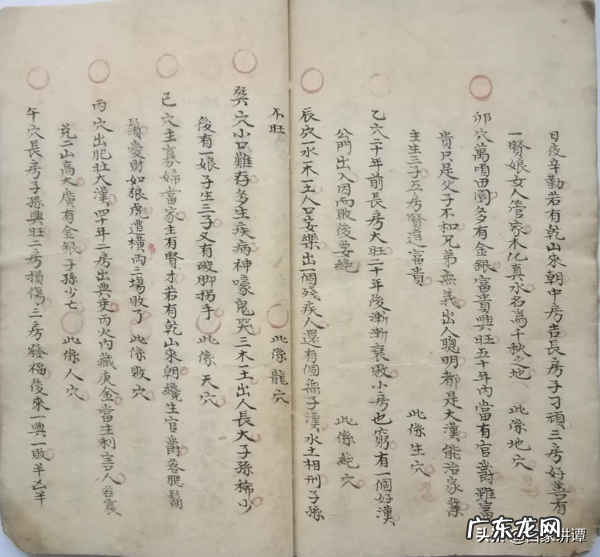 日夜辛勤若有乾山來朝中房吉長房子刁頑三房好善有
一賢娘女人管家木化真水名為千秋之地 此係地穴
卯穴萬頃田園多有金銀富貴興旺五十年內當有官爵雖富
貴只是父子不和兄弟無義出人聰明都是大漢能治家業
主生三子五房賢達富貴 此係生穴
乙穴二十年前長房大旺二十年後漸漸衰敗小房也窮有一個好漢
公門出入因而敗後要絕 此係絕穴
辰穴一水一木一土人口安樂出一個殘疾人還有個無子漢水土相刑子孫
不旺 此係龍穴
巽穴小口難存多生疾病神嚎鬼哭三木一土出人長大子孫稀少
後有一娘子生三子又有破脚拐手 此係天穴
己穴主寡婦當家主有賢才若有乾山來朝纔生官爵落腮鬍
鬚愛財如狼虎遭橫兩三場敗了 此係敗穴
丙穴出肥壯大漢四十年二房出典吏丙火內藏庚金當主利害人若震
兌二山高大廣有金銀子孫少亡 此係人穴
午穴長房子孫興旺二房損傷三房發福後來一興一敗半凶半
头条 @百家讲谭
广东龙网